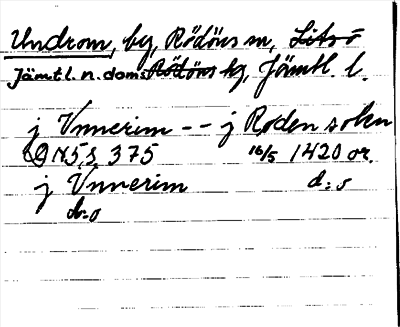 Undrom, by, Rödöns sn, Lits o
Jämtl. n. doms Rödöns tg, Jämtl. l.
j Vnnerim -- j Roden sokn
DN 5, S 375 16/5 1420 or.
j Vnnerim d:o
d:o